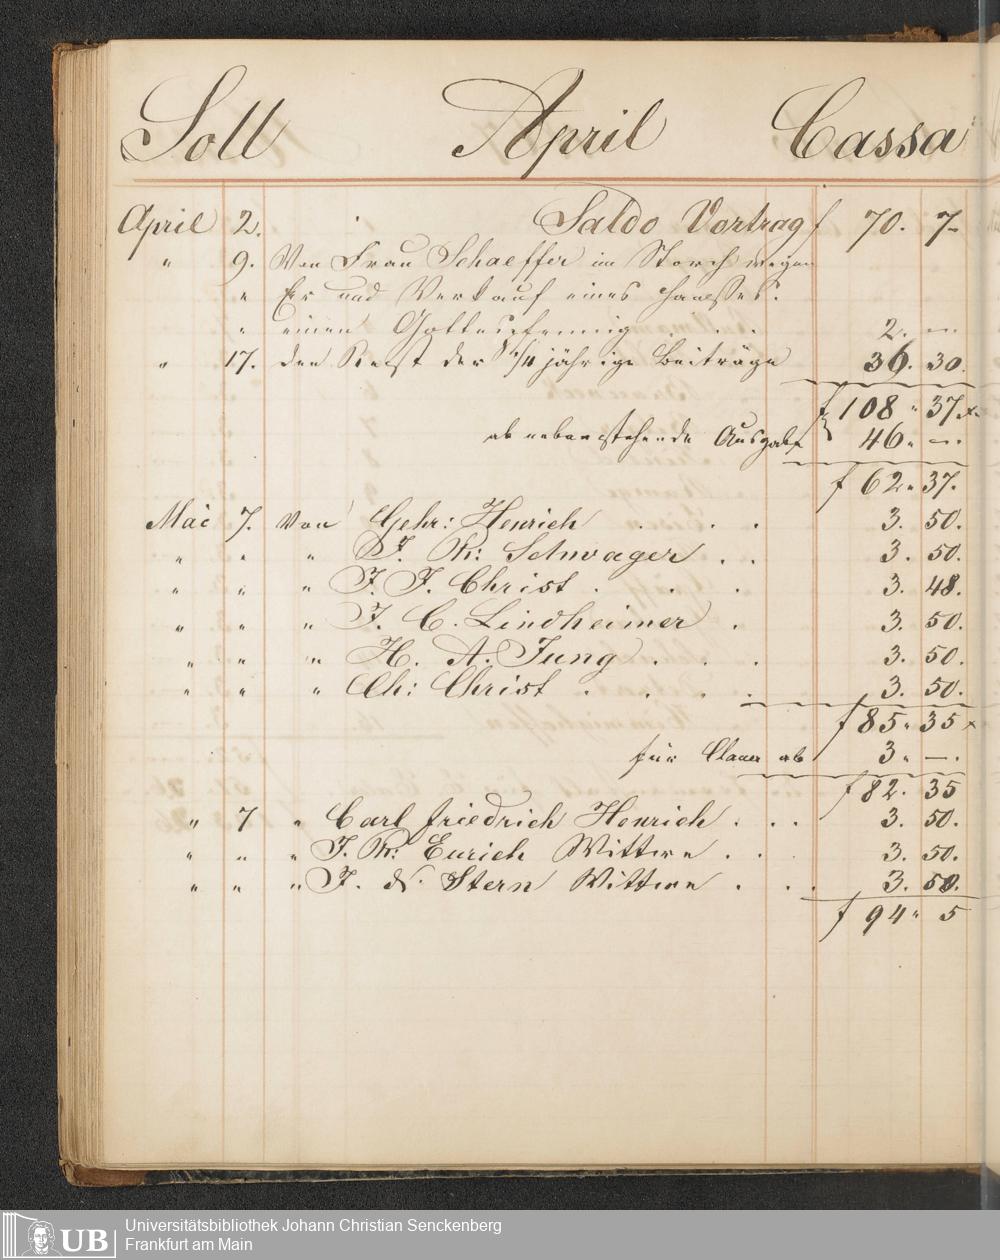 Soll April Cassa
April 2. Saldo Vortrag f 70. 7
" 9. Von Frau Schaeffer im Storch wegen
" Er und Verkauf eines Hausses.
" einen Gottespfennig . . 2. —
" 17. den Rest der 1/4 jährige Beiträge 36. 30.
f 108 " 37 x
ab nebenstehende Ausgabe 46 " —
f 62 " 37.
Mai 7. Von Gehr: Henrich . . . 3. 50.
" " " J. Ph: Schwager . . 3. 50.
" " " J. J. Christ . . . 3. 48.
" " " J. C. Lindheimer . 3. 50.
" " " H. A. Jung . . . 3. 50.
" " " Ch: Christ . . . . 3. 50.
f 85 " 35 x
für Clauer ab 3 " —.
f 82. 35
" 7 " Carl Friedrich Henrich . . . 3. 50.
" " " J. Ph: Eurich Wittwe . . 3. 50.
" " " J. D. Stern Wittwe . . . 3. 50.
f 94 " 5
UB Universitätsbibliothek Johann Christian Senckenberg
Frankfurt am Main